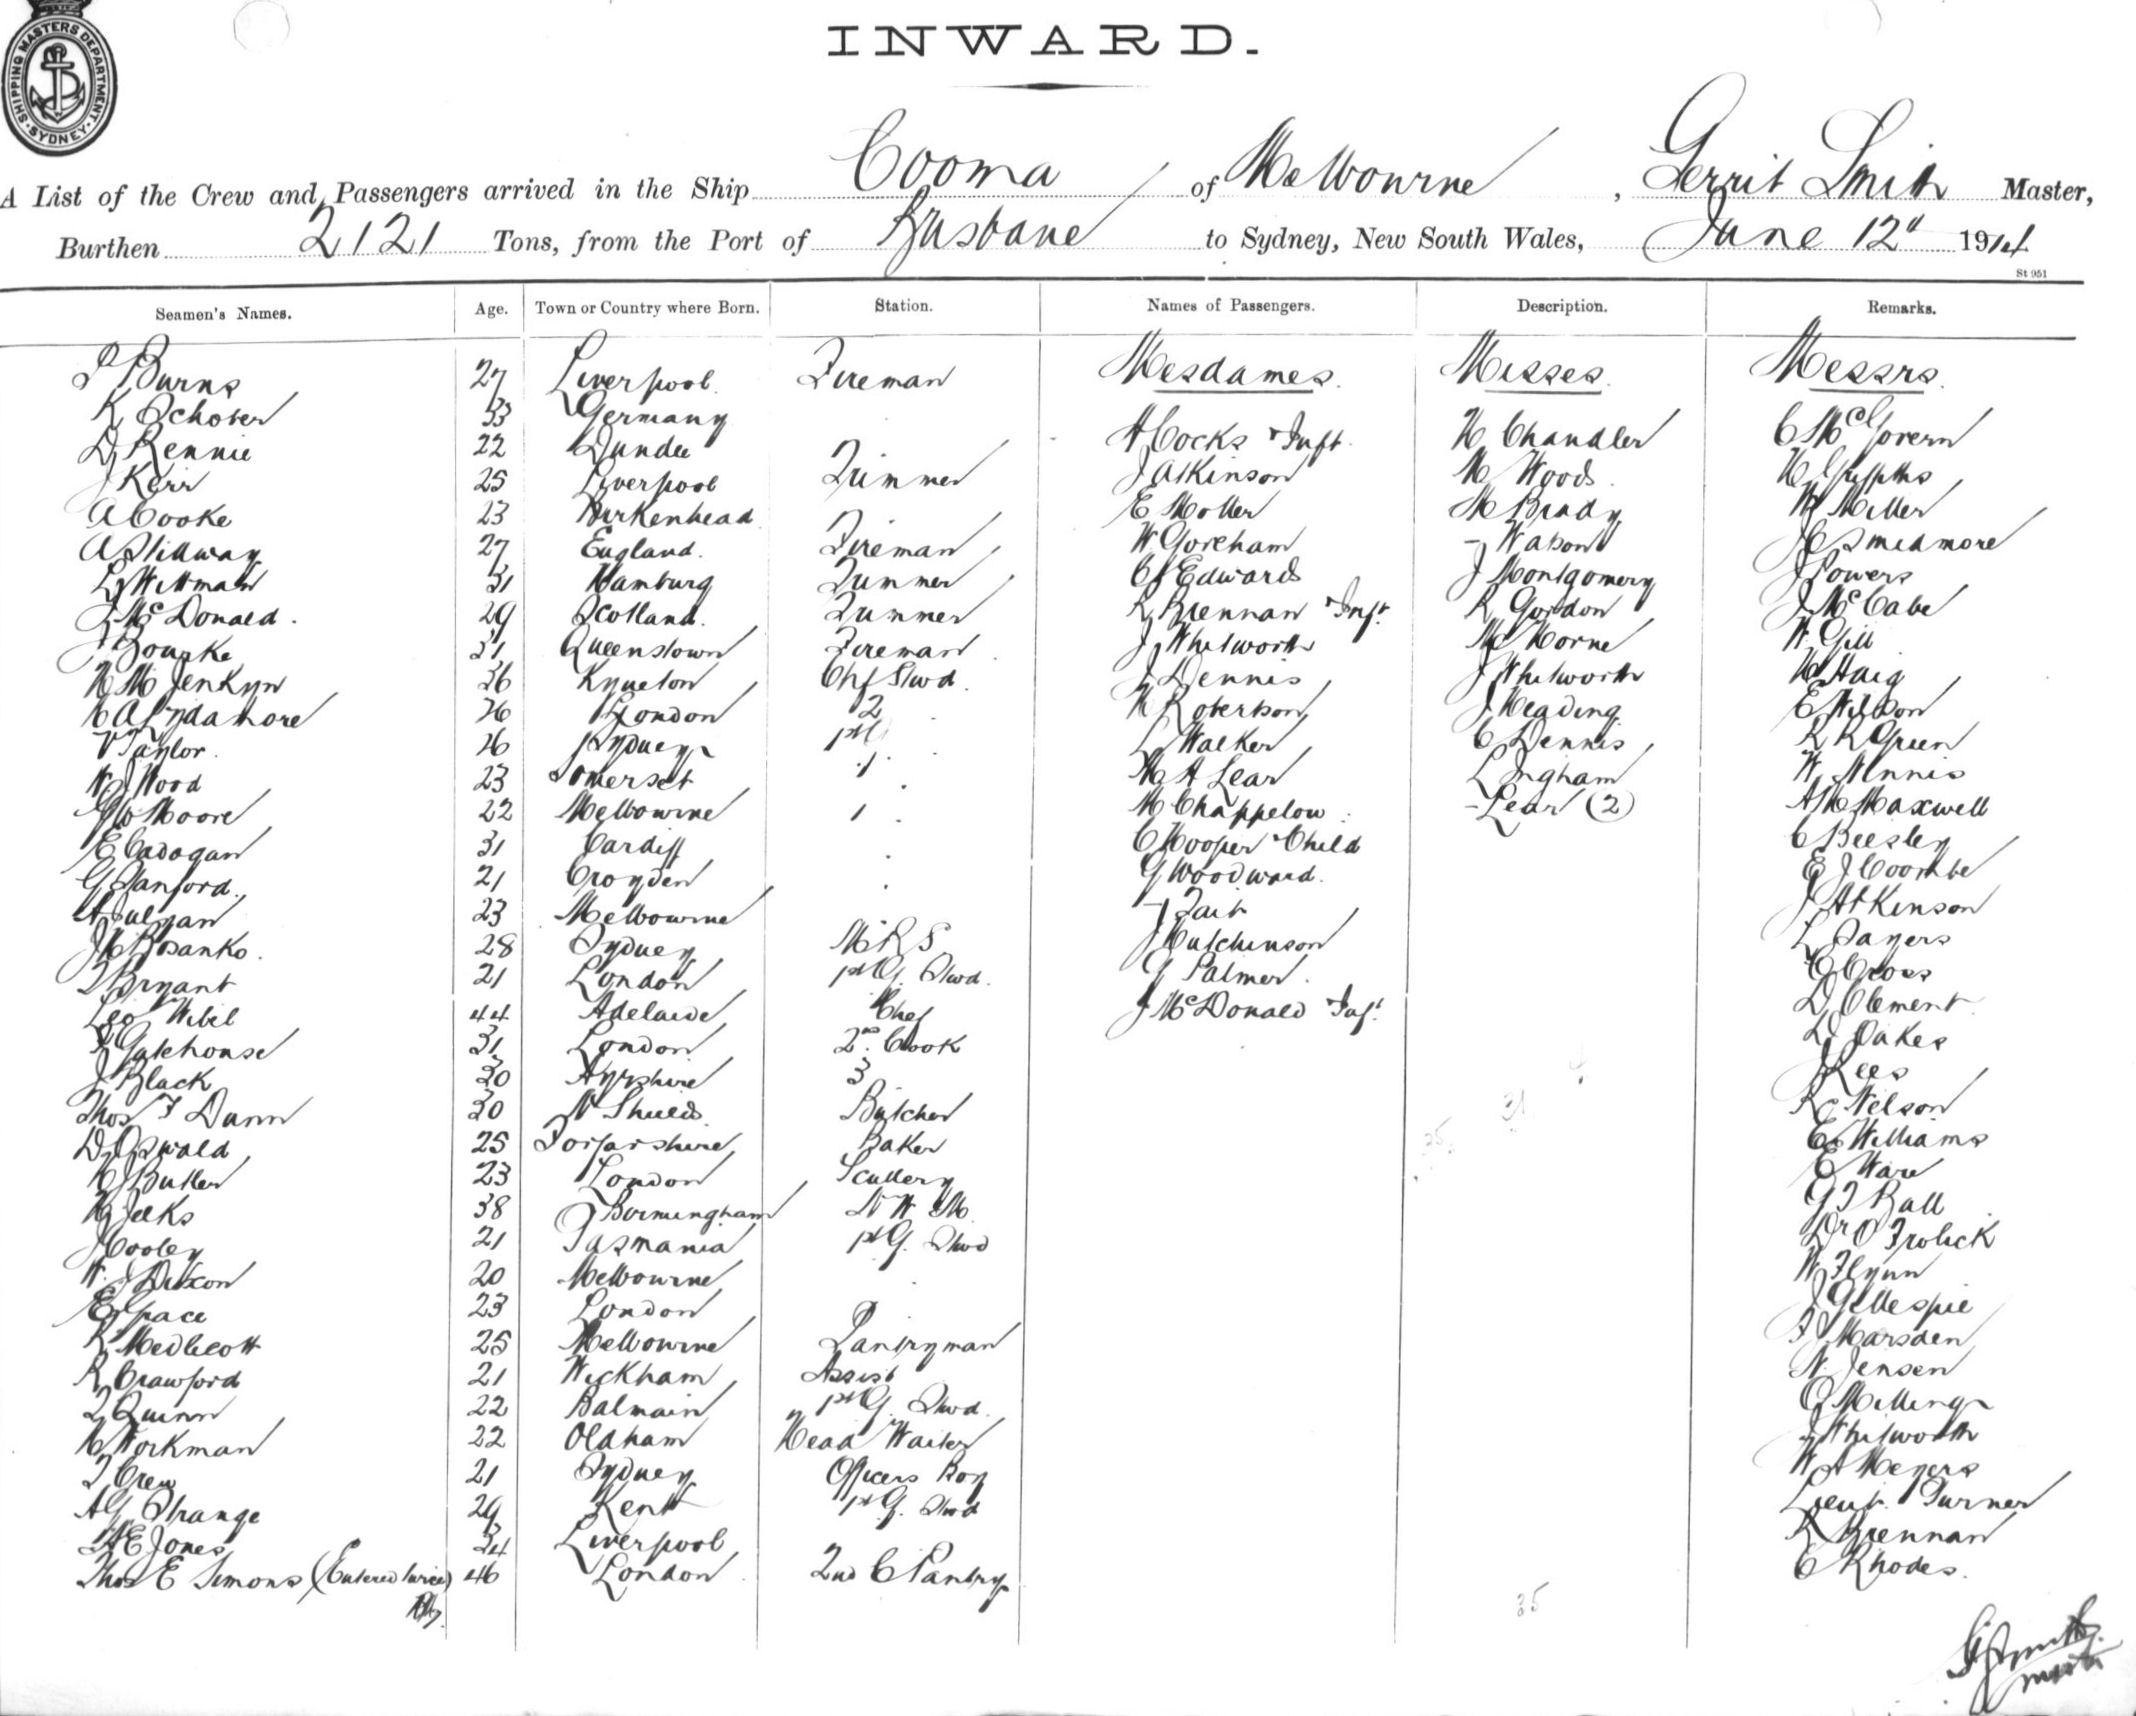 SHIPPING MASTERS DEPARTMENT
SYDNEY
INWARD.
A List of the Crew and Passengers arrived in the Ship Cooma of Melbourne, Gerrit Smith Master,
Burthen 2121 Tons, from the Port of Brisbane to Sydney, New South Wales, June 12th 1914
St 951
Seamen's Names. Age. Town or Country where Born. Station. Names of Passengers. Description. Remarks.
P Burns 27 Liverpool Fireman Mesdames. Misses. Messrs.
K Schober 33 Germany
D Rennie 22 Dundee A Cocks + Inft. H Chandler C McGovern
J Kerr 25 Liverpool Trimmer J Atkinson M Woods H Griffiths
A Cooke 23 Birkenhead E Moller M Brady W Miller
A Stillway 27 England. Fireman W Goreham - Watson J C Smidmore
L Wittman 31 Hamburg Trimmer C J Edwards J Montgomery J Powers
J McDonald. 29 Scotland. Trimmer R Brennan + Inft. R Gordon J McCabe
J Bourke 31 Queenstown Fireman J Whitworth M Horne W Gill
H M Jenkyn 36 Kyneton Chf Stwd. J Dennis J Whitworth H Haig
26 London 2 R Robertson J Heading E Wilson
V Taylor. 26 Sydney L Walker C Dennis R R Green
W J Wood 23 Somerset M A Lear L Ingham W N Innis
G W Moore 22 Melbourne M Chappelow - Lear (2) A M Maxwell
E Cadogan 31 Cardiff C Hooper + Child C Beesley
G Stanford. 21 Croyden G Woodward. E J Coombe
23 Melbourne - Tait J Atkinson
J H Bosanko. 28 Sydney M R S J Hutchinson L Sayers
T Bryant 21 London 1st G. Stwd. G Palmer. C Cross
Leo Wibel 44 Adelaide Chef J McDonald + Inf. D Clement
J Gatehouse 31 London 2nd Cook D Oakes
J Black 30 Ayrshire 3 J Rees
Thos F Dunn 30 N Shields Butcher R Nelson
D Oswald 25 Forfarshire Baker E Williams
H Butler 23 London Scullery E Ware
H Jeeks 38 Birmingham N W M. G T Ball
J Cooley 21 Tasmania 1st G. Stwd Dr O Frolick
W. J Dixon 20 Melbourne W Flynn
E Space 23 London J Gillespie
R Medlicott 25 Melbourne Pantryman F Marsden
R Crawford 21 Wickham Assist N. Jensen
T Quinn 22 Balmain 1st G. Stwd. C Milling
H Workman 22 Oldham Head Waiter J Whitworth
T Crew 21 Sydney Officers Boy W A Meyers
A G Strange 29 Kent 1st G. Stwd Lieut. Turner
A E Jones 34 Liverpool R Brennan
Thos E Simons (Entered twice) 46 London 2nd C Pantry C Rhodes.
31
35
35
G Smith
Master